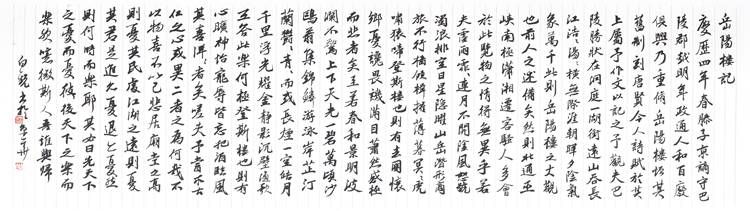 岳陽樓記
慶歷四年春滕子京謫守巴
陵郡越明年政通人和百廢
俱興乃重修岳陽樓增其
舊制刻唐賢今人詩賦於其
上屬予作文以記之予觀夫巴
陵勝狀在洞庭一湖銜遠山吞長
江浩浩湯湯橫無際涯朝暉夕陰氣
象萬千此則岳陽樓之大觀
也前人之述備矣然則北通巫
峽南極瀟湘遷客騷人多會
於此覽物之情得無異乎若
夫霪雨霏霏連月不開陰風怒號
濁浪排空日星隱曜山岳潛形商
旅不行檣傾楫摧薄暮冥冥虎
嘯猿啼登斯樓也則有去國懷
鄉憂讒畏譏滿目蕭然感極
而悲者矣至若春和景明波
瀾不驚上下天光一碧萬頃沙
鷗翔集錦鱗游泳岸芷汀
蘭郁郁青青而或長煙一空皓月
千里浮光耀金靜影沉璧漁歌
互答此樂何極登斯樓也則有
心曠神怡寵辱皆忘把酒臨風
其喜洋洋者矣嗟夫予嘗求古
仁人之心或異二者之為何哉不
以物喜不以己悲居廟堂之高
則憂其民處江湖之遠則憂
其君是進亦憂退亦憂然
則何時而樂耶其必曰先天下
之憂而憂後天下之樂而
樂歟噫微斯人吾誰與歸